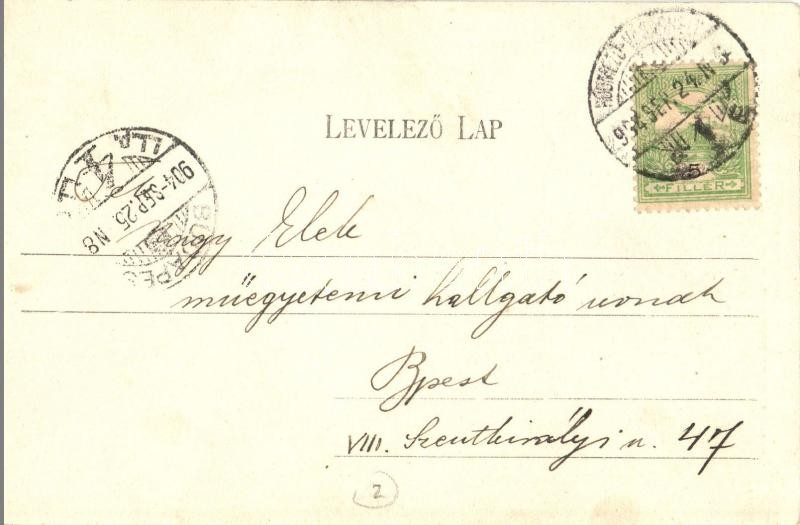 LEVELEZŐ LAP
904 SEP. 24.
5
FILLÉR
904 SEP. 25. N8
BUDAPES
Nagy Elek
műegyetemi hallgató urnak
Bpest
VIII. Szentkirályi u. 47
2